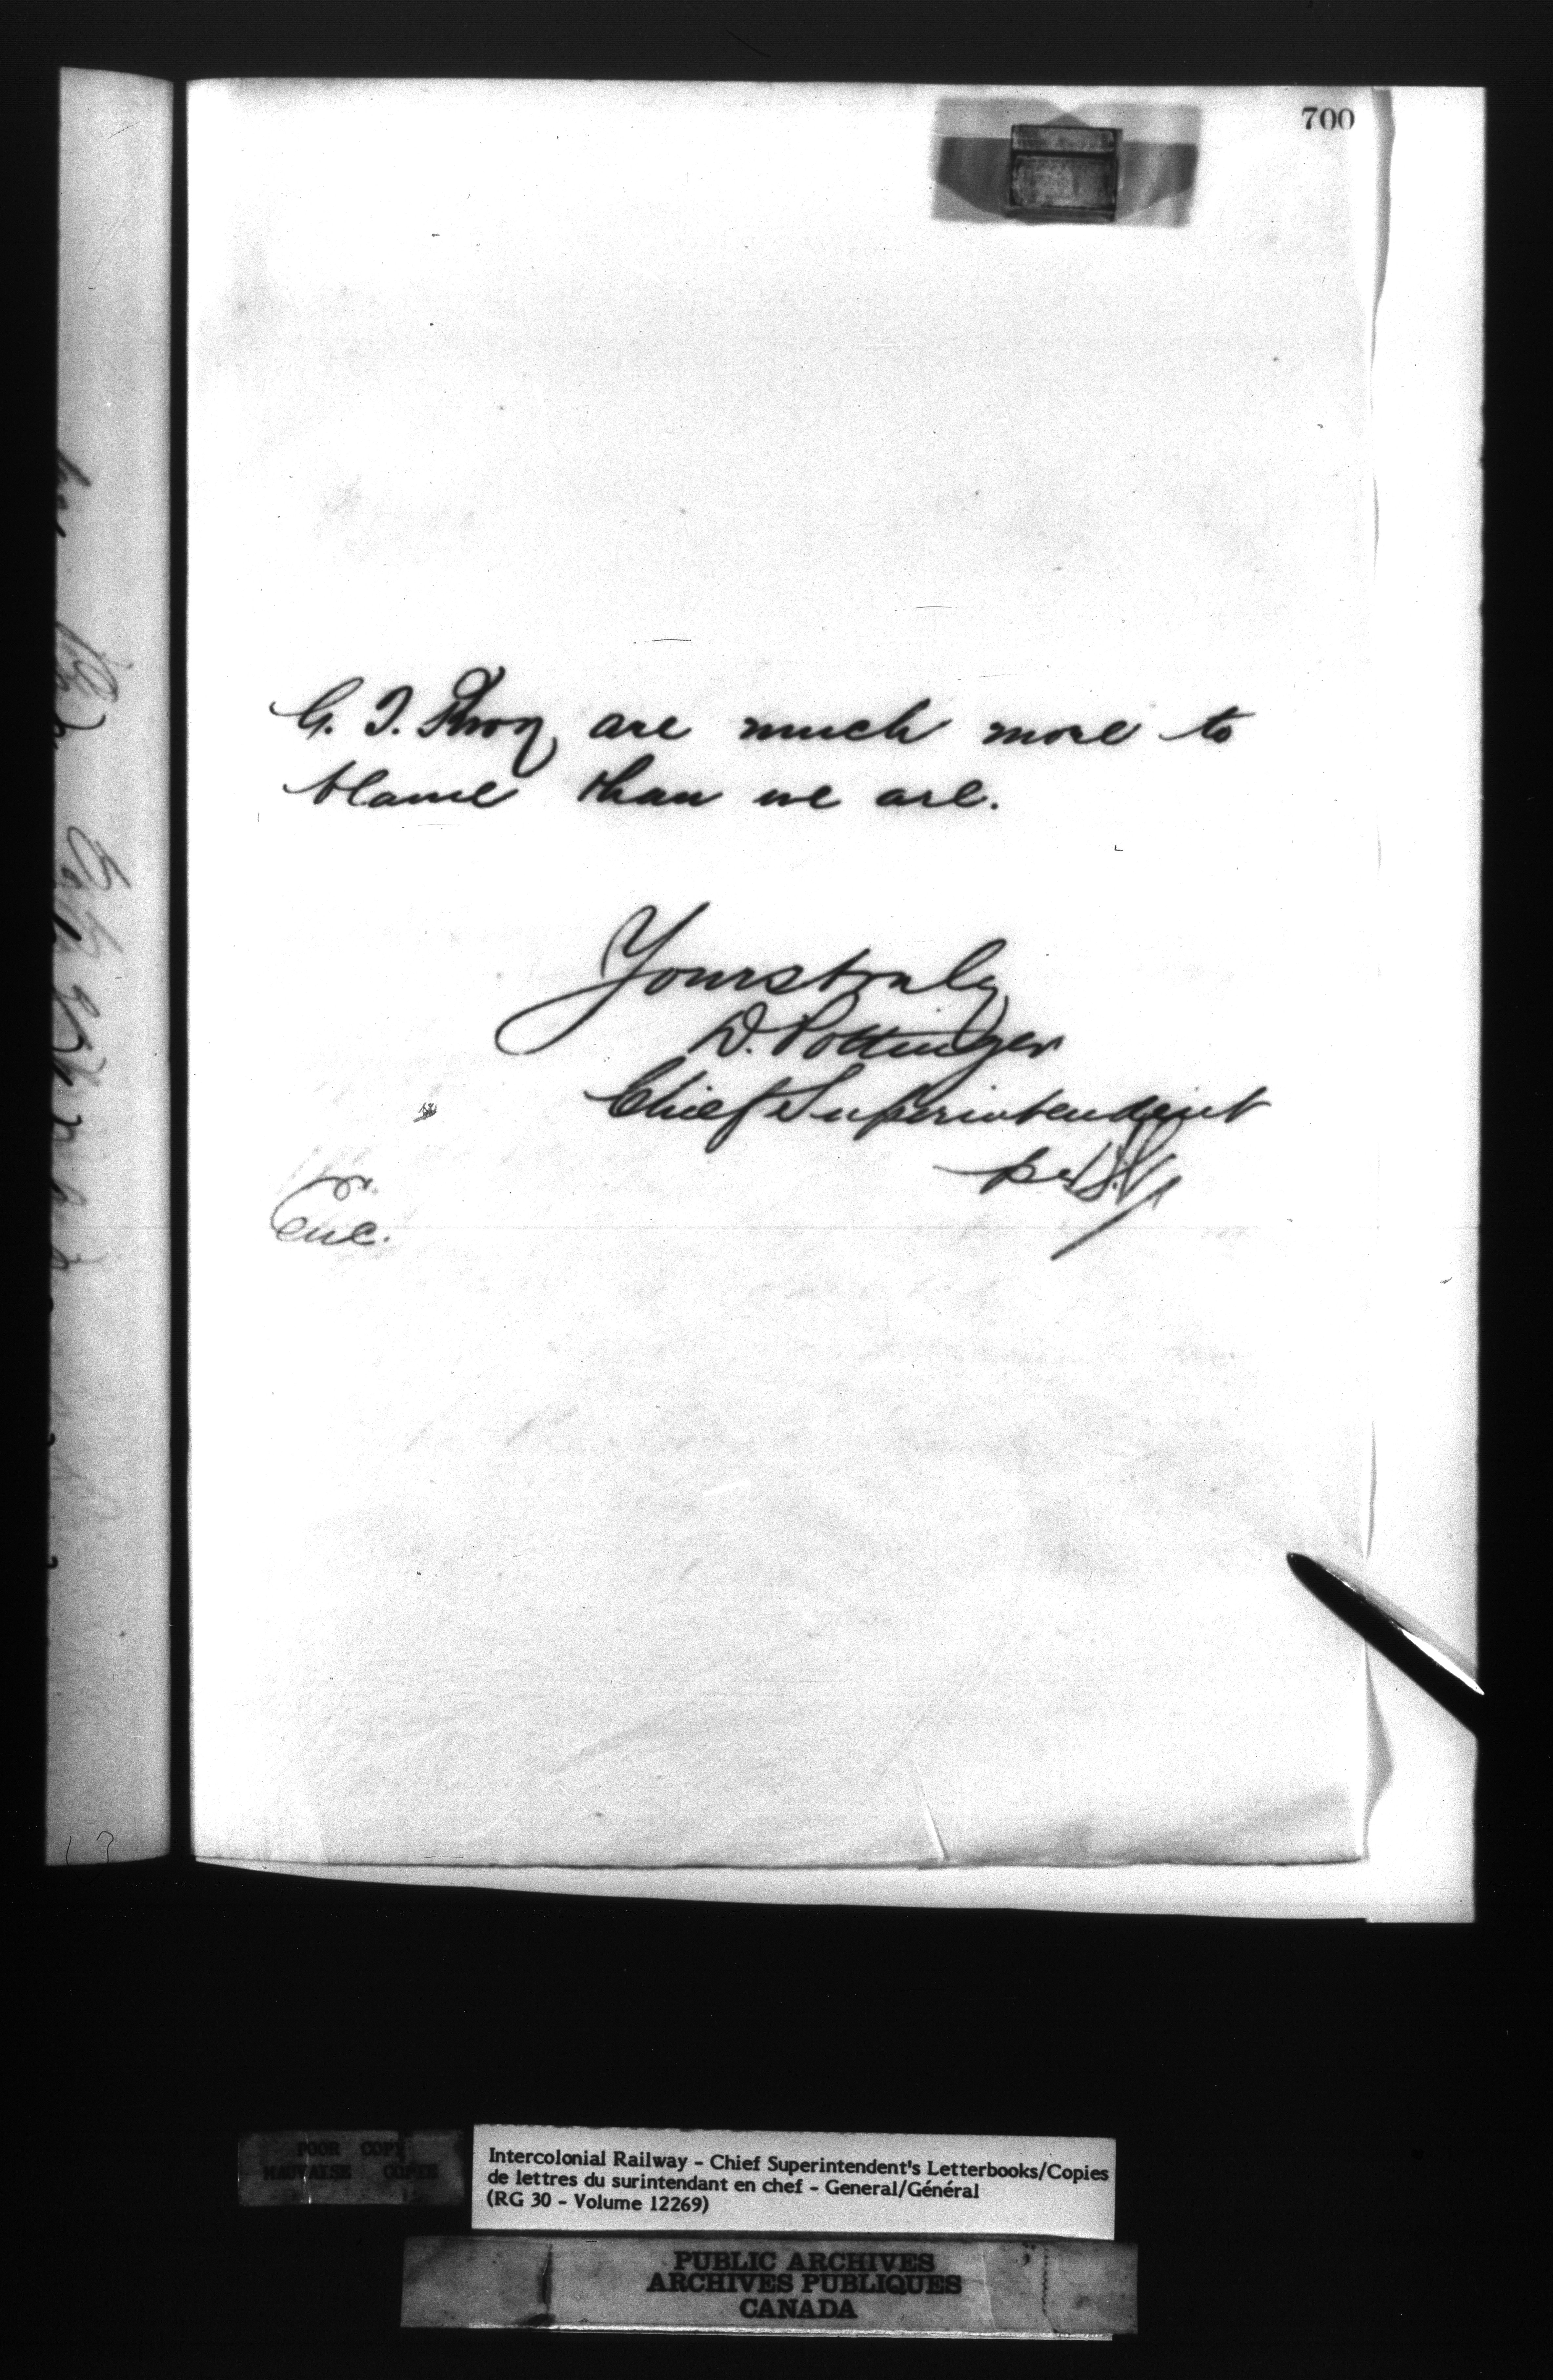 700
G. T. Rway are much more to
blame than we are.
Yours truly
D. Pottinger
Chief Superintendent
per
Enc.
POOR COPY
MAUVAISE COPIE
Intercolonial Railway - Chief Superintendent's Letterbooks/Copies
de lettres du surintendant en chef - General/Général
(RG 30 - Volume 12269)
PUBLIC ARCHIVES
ARCHIVES PUBLIQUES
CANADA